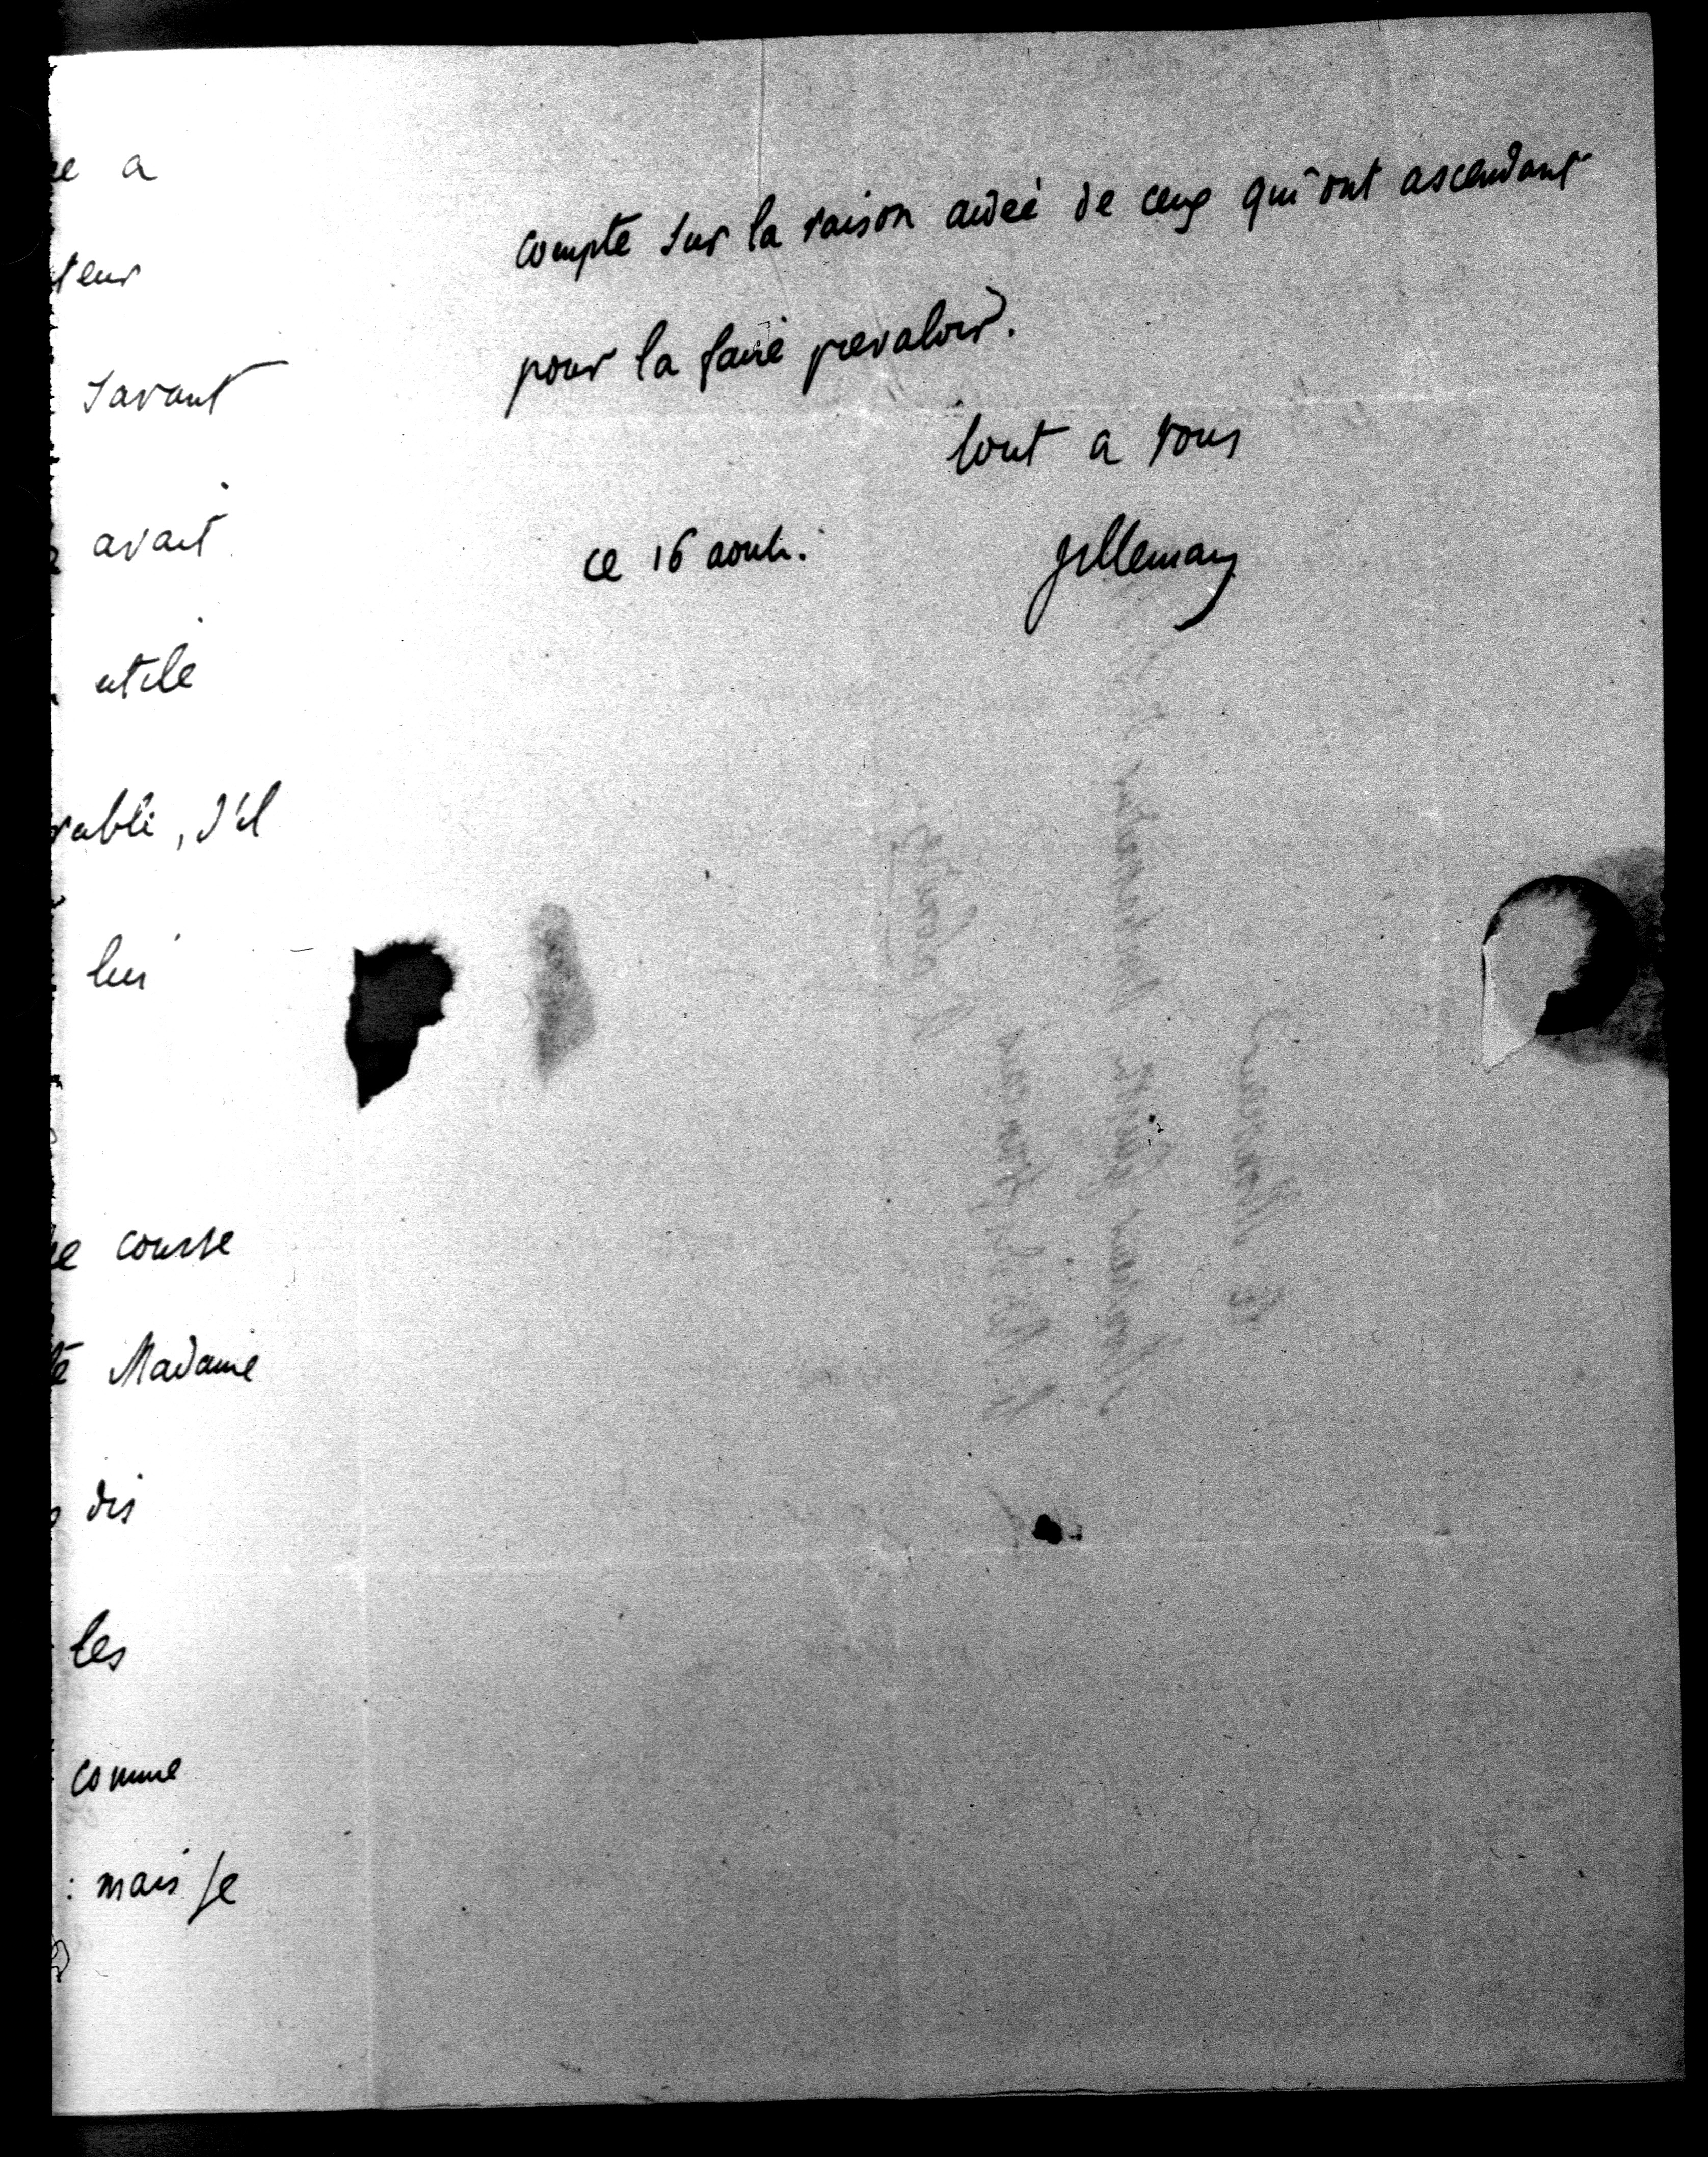 a
teur
savant
avait
utile
rable, s'il
lui
course
Madame
dis
les
comme
: mais je
compte sur la raison aidée de ceux qui ont ascendant
pour la faire prevaloir.
tout a vous
ce 16 aout.
Villemain